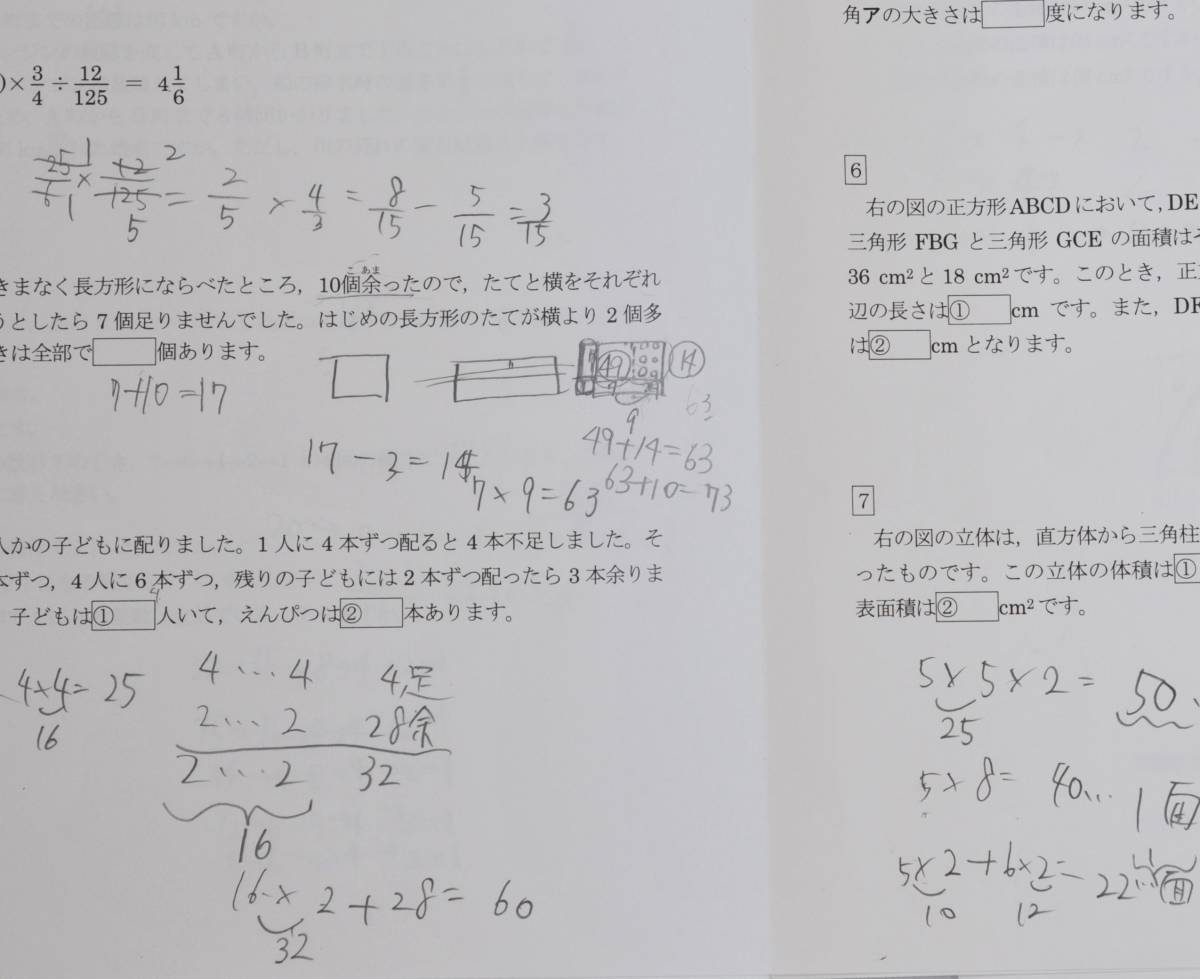 )× 3/4 ÷ 12/125 = 4 1/6
25/6 × 12/125 = 2/5 × 4/3 = 8/15 - 5/15 = 3/15
1 2
1 5
きまなく長方形にならべたところ，10個余ったので，たてと横をそれぞれ
こ あま
うとしたら7個足りませんでした。はじめの長方形のたてが横より2個多
きは全部で 個あります。
7+10=17
49 14
63
9
17-3=14
49+14=63
7×9=63
63+10=73
人かの子どもに配りました。1人に4本ずつ配ると4本不足しました。そ
本ずつ，4人に6本ずつ，残りの子どもには2本ずつ配ったら3本余りま
子どもは① 人いて，えんぴつは② 本あります。
4×4=25
16
4…4 4足
2…2 28余
2…2 32
16
16×2+28=60
32
角アの大きさは 度になります。
6
右の図の正方形ABCDにおいて，DE
三角形 FBG と三角形 GCE の面積はそ
36 cm²と18 cm²です。このとき，正
辺の長さは① cm です。また，DF
は② cmとなります。
7
右の図の立体は，直方体から三角柱
ったものです。この立体の体積は①
表面積は② cm²です。
5×5×2=50
25
5×8=40… 1面
5×2+6×2=22…面
10 12